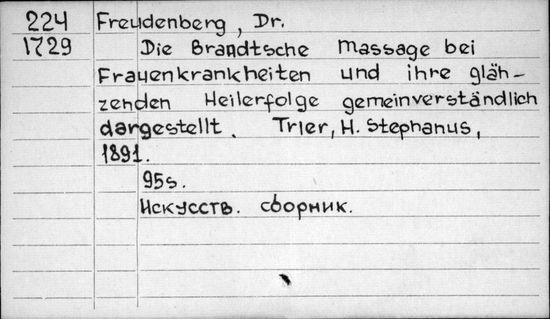 224 Freudenberg, Dr.
1729 Die Brandtsche Massage bei
Frauenkrankheiten und ihre gläh-
zenden Heilerfolge gemeinverständlich
dargestellt. Trier, H. Stephanus,
1891.
95s.
Искусств. сборник.